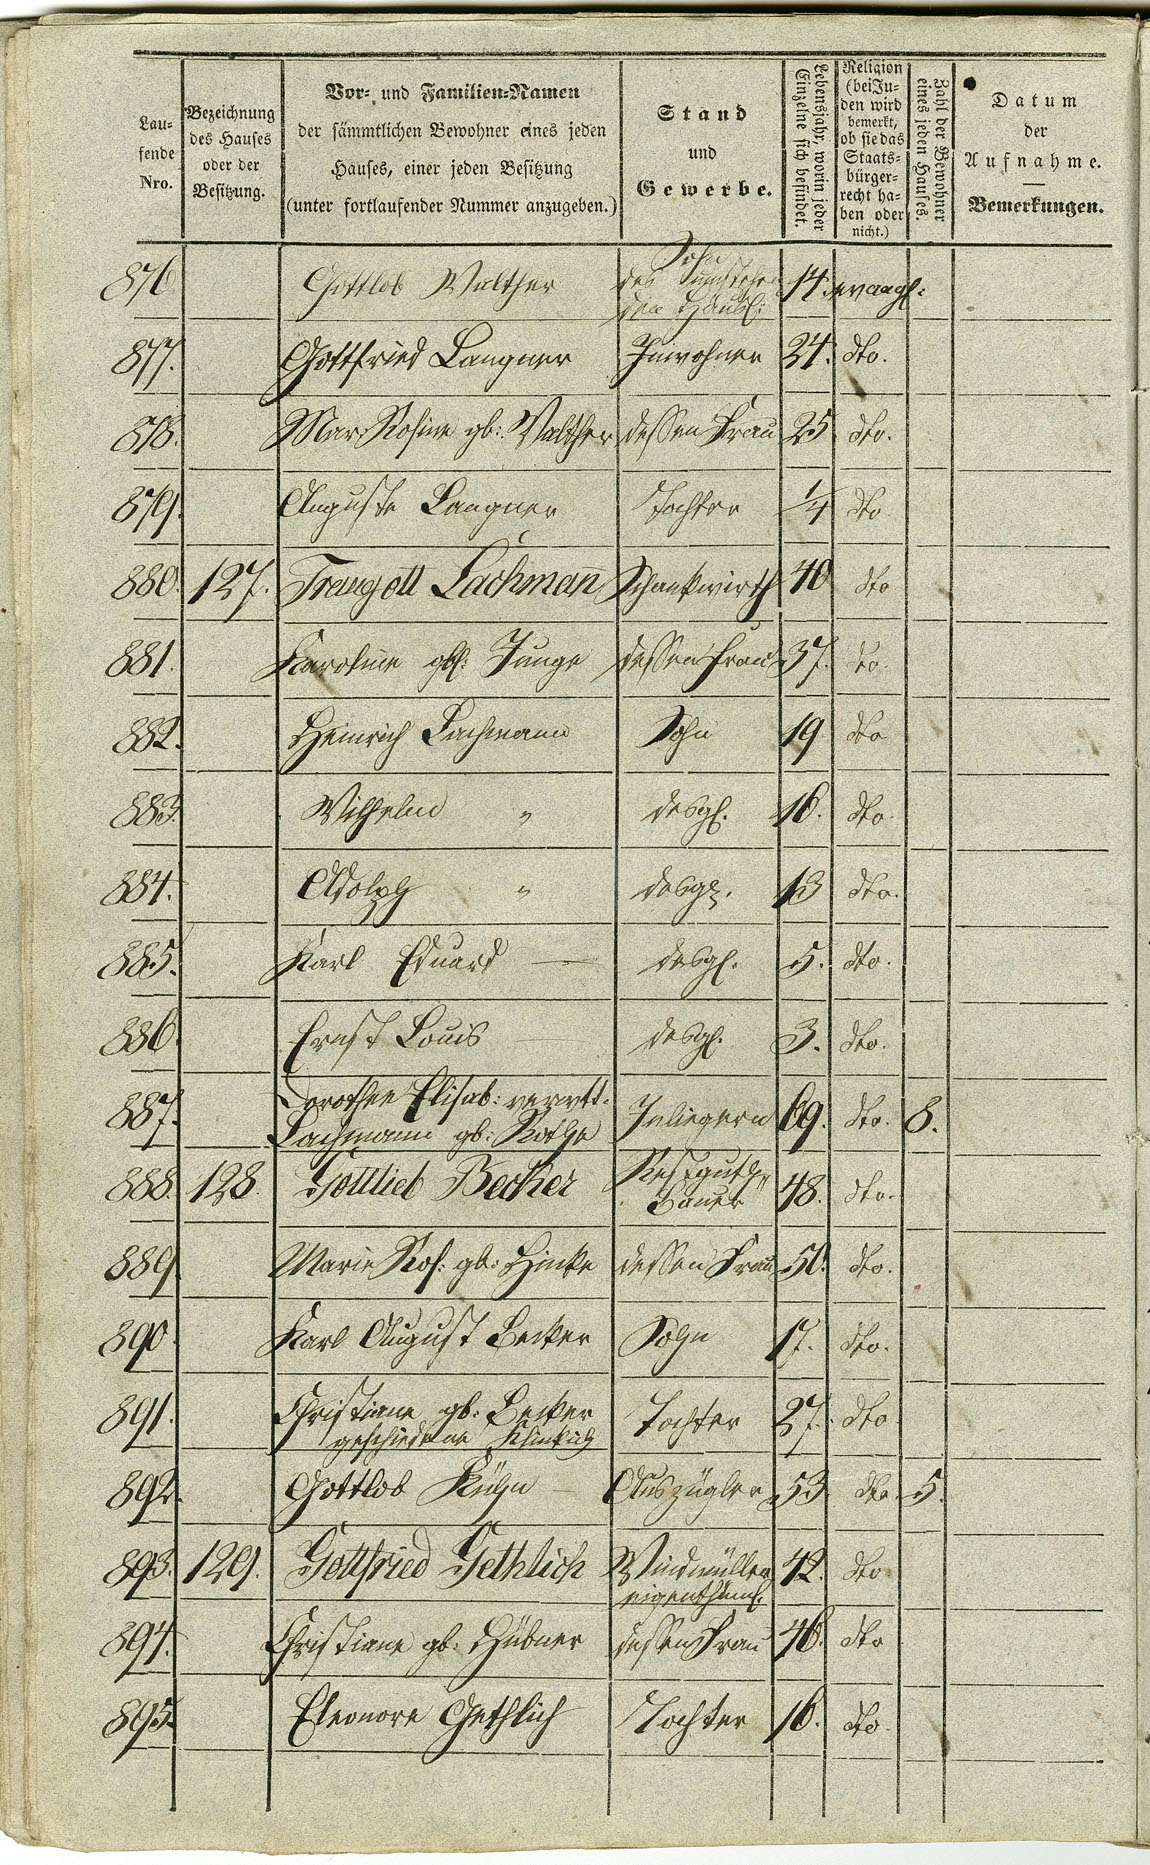 Lau-
fende
Nro.
Bezeichnung
des Hauses
oder der
Besitzung.
Vor- und Familien-Namen
der sämmtlichen Bewohner eines jeden
Hauses, einer jeden Besitzung
(unter fortlaufender Nummer anzugeben.)
Stand
und
Gewerbe.
Lebensjahr, worin jeder
Einzelne sich befindet.
Religion
(bei Ju-
den wird
bemerkt,
ob sie das
Staats-
bürger-
recht ha-
ben oder
nicht.)
Zahl der Bewohner
eines jeden Hauses.
Datum
der
Aufnahme.
Bemerkungen.
Sohn
876 Gottlob Walther des 14. evangl:
den Häusl:
877. Gottfried Langner Inwohner 24. dto.
878. Mar. Rosine gb: Walther dessen Frau 25 dto.
879. Auguste Langner Tochter 1/4 dto
880. 127. Traugott Lachmann Schankwirth 40 dto
881. Karoline gb: Junge dessen Frau 37. dto.
882. Heinrich Lachmann Sohn 19 dto
883. Wilhelm " desgl. 16. dto.
884. Adolph " desgl. 13 dto.
885. Karl Eduard — desgl. 5. dto.
886. Ernst Louis desgl. 3. dto.
Dorothee Elisab: verwtt.
887. Lachmann gb: Rothe Inliegerin 69. dto. 8.
888. 128. Gottlieb Becker Restguths
Bauer 48. dto.
889 Marie Ros: gb: Hinke dessen Frau 50. dto.
890. Karl August Becker Sohn 17. dto.
891. Christiane gb: Becker Tochter 27. dto
geschiedene
892. Gottlob Kühn Auszügler 53 dto. 5.
893. 129. Gottfried Gethlich Windmüller 42. dto
eigenthüml.
894. Christiane gb: Hübner dessen Frau 46. dto
895. Eleonore Gethlich Tochter 16. dto.